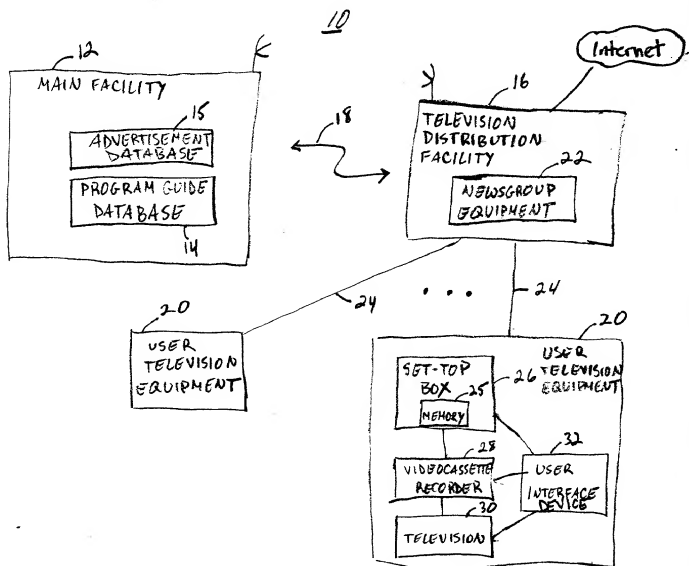 10
12
MAIN FACILITY
15
ADVERTISEMENT
DATABASE
PROGRAM GUIDE
DATABASE
14
18
Internet
16
TELEVISION
DISTRIBUTION
FACILITY
22
NEWSGROUP
EQUIPMENT
24
24
20
USER
TELEVISION
EQUIPMENT
20
USER
TELEVISION
EQUIPMENT
SET-TOP
BOX
26
25
MEMORY
28
VIDEOCASSETTE
RECORDER
32
USER
INTERFACE
DEVICE
30
TELEVISION